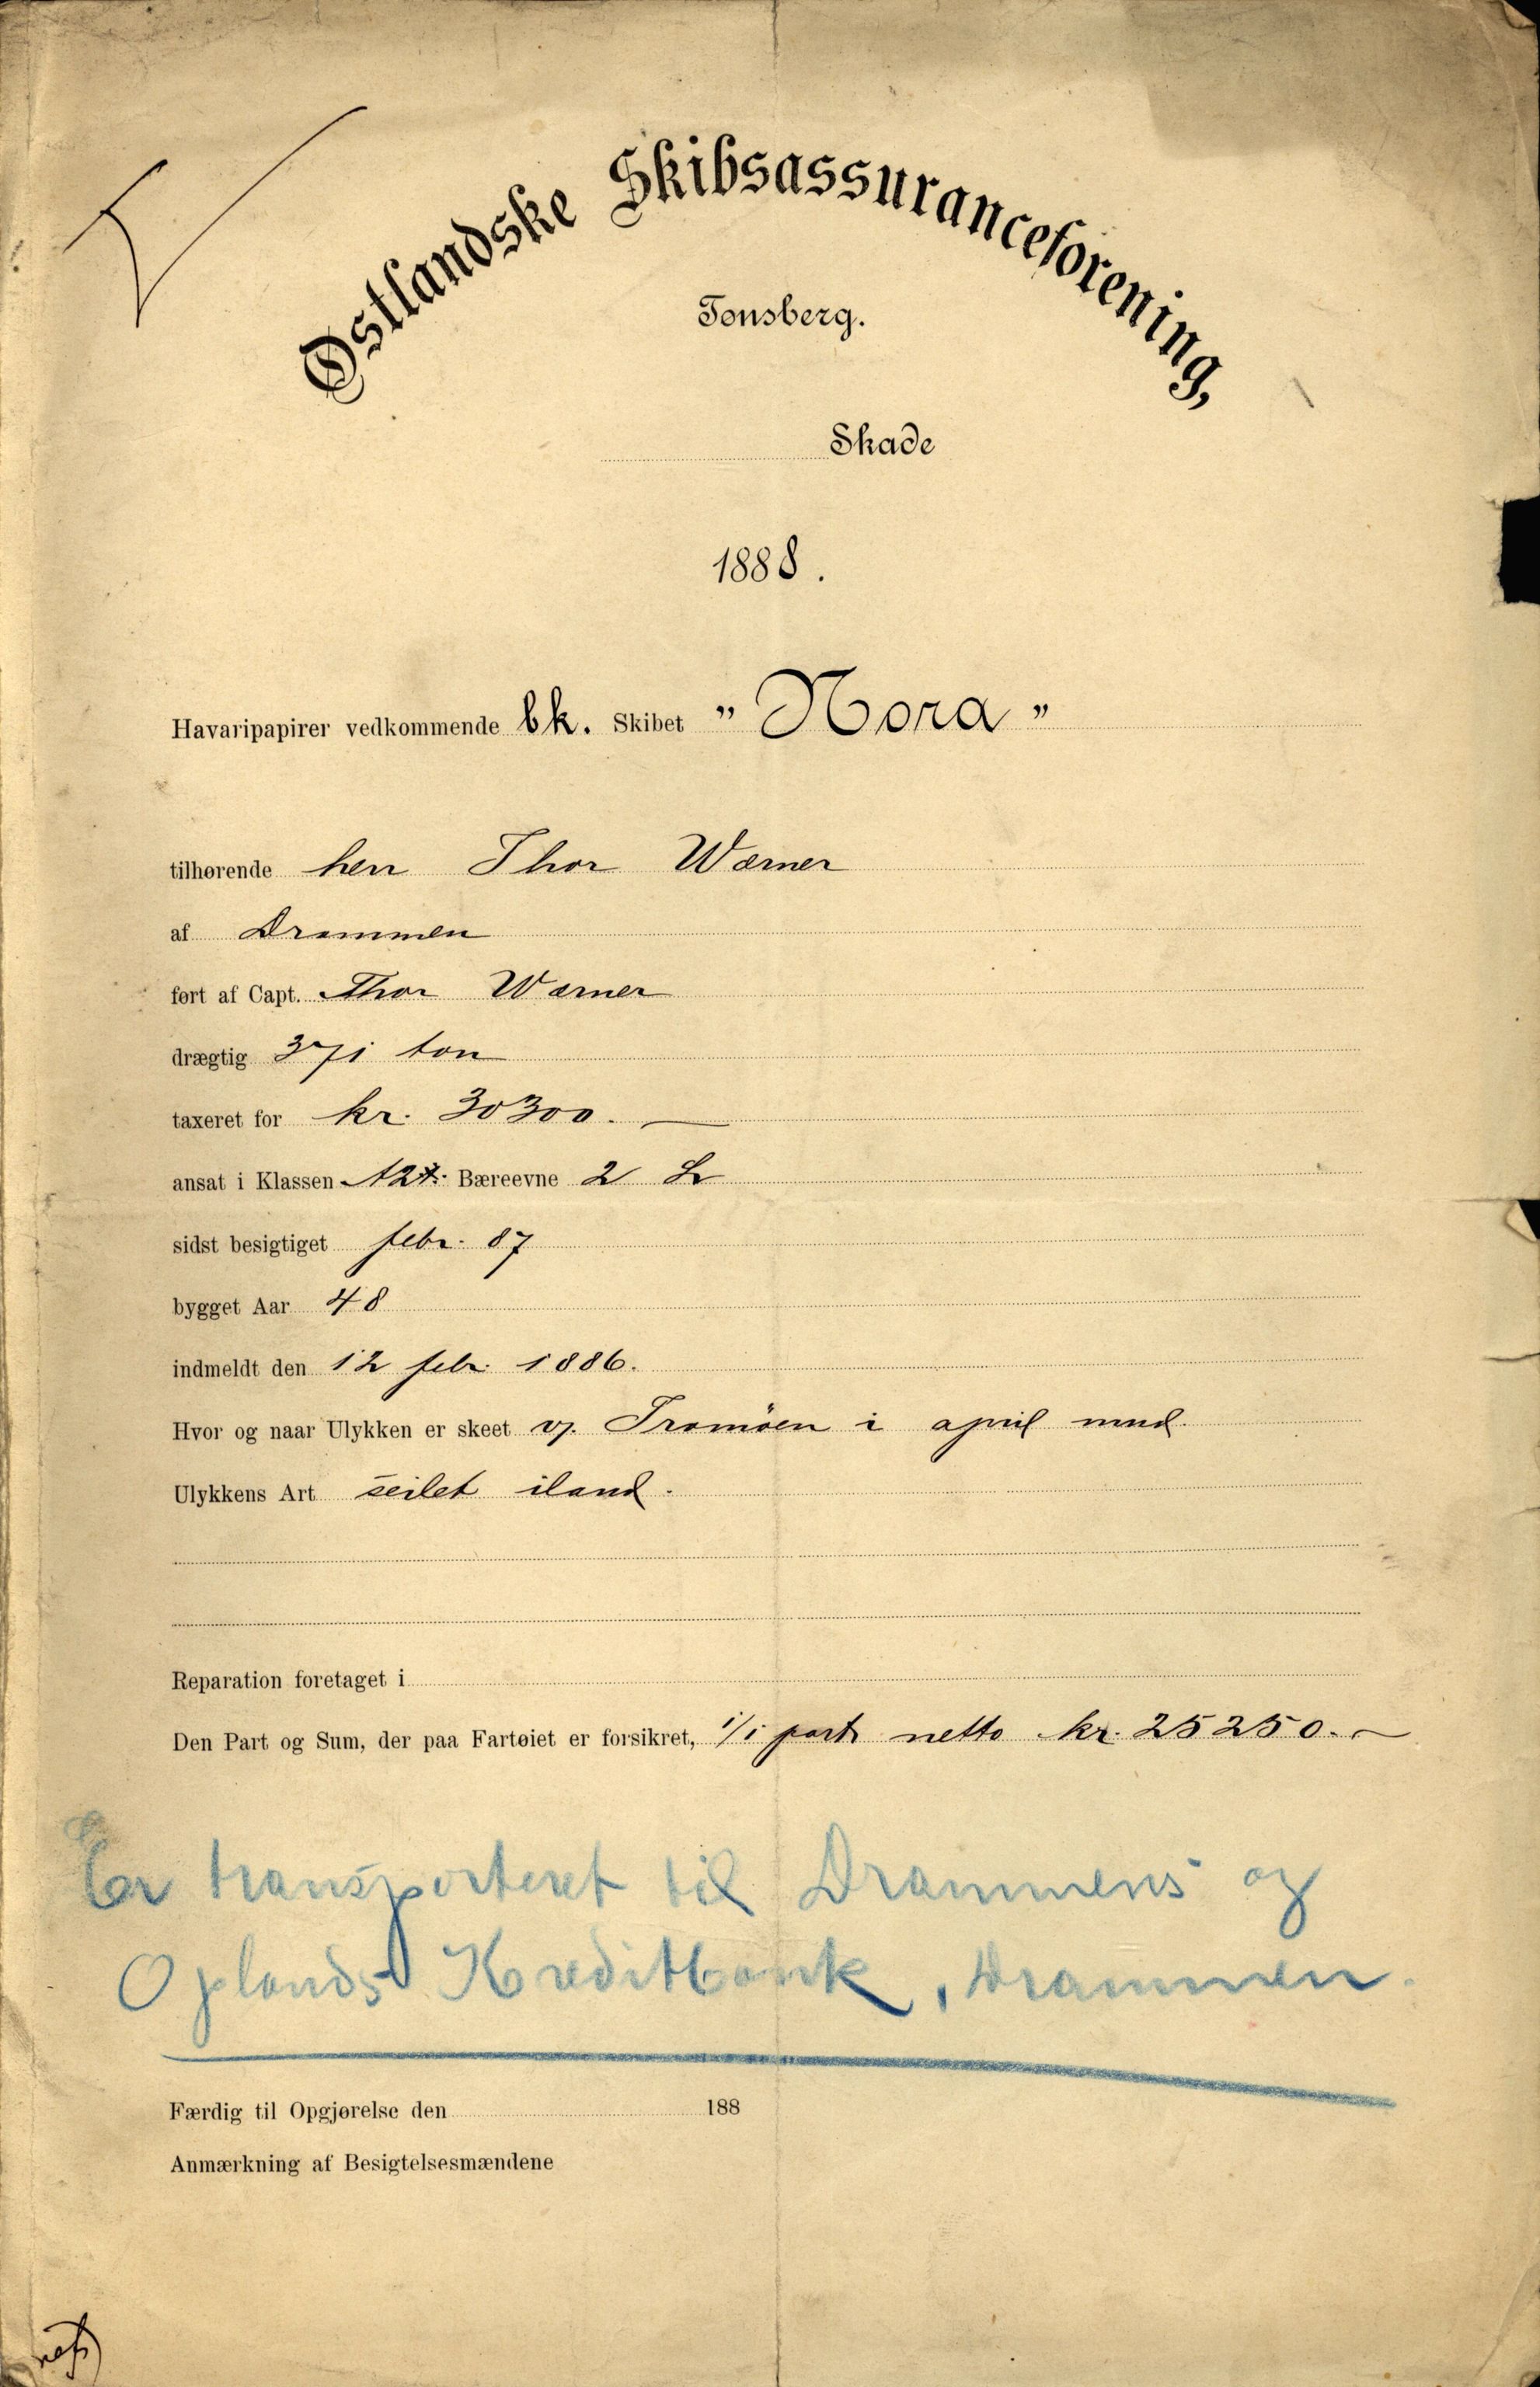 Østlandske Skibsassuranceforening,
Tønsberg.
Skade
1888.
Havaripapirer vedkommende bk. Skibet "Nora"
tilhørende herr Thor Wærner
af Drammen
ført af Capt. Thor Wærner
drægtig 371 ton
taxeret for kr. 30300. —
ansat i Klassen A2 Bæreevne 2 L
sidst besigtiget febr. 87
bygget Aar 48
indmeldt den 12 febr 1886.
Hvor og naar Ulykken er skeet v. Tromöen i april mnd.
Ulykkens Art seilet iland.
Reparation foretaget i
Den Part og Sum, der paa Fartøiet er forsikret, 1/1 part netto kr. 25250. —
Er transporteret til Drammens og
Oplands Kreditbank, Drammen.
Færdig til Opgjørelse den 188
Anmærkning af Besigtelsesmændene